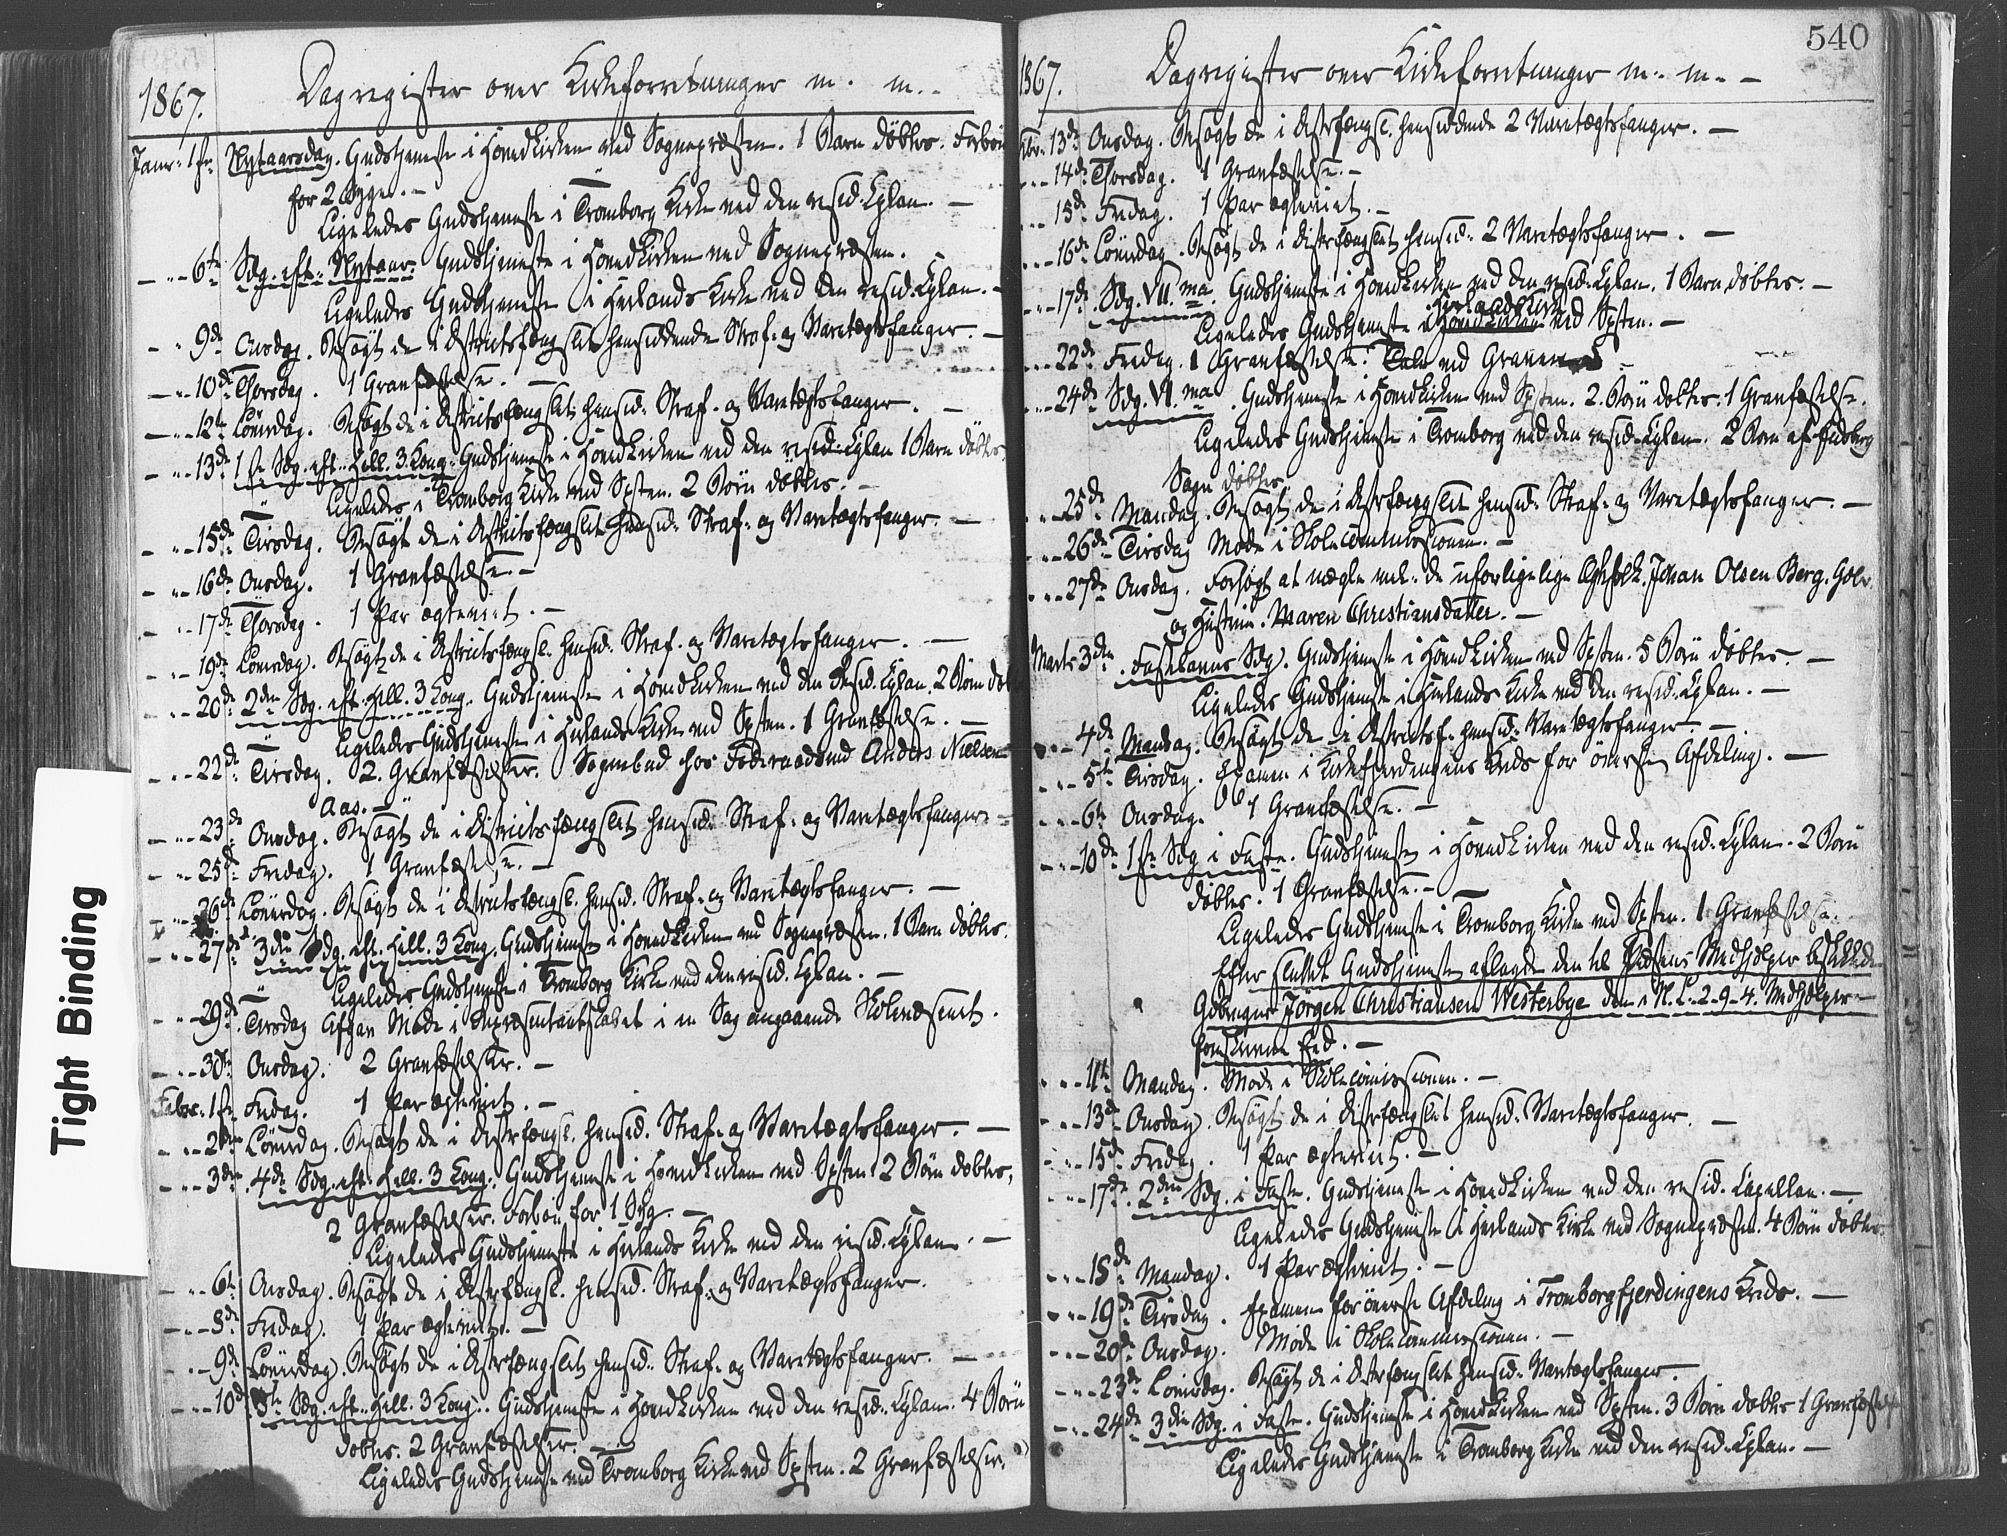 1867.
Dagregister over Kirkeforretninger m. m.
Janr: 1ste Nytaarsdag. Gudstjeneste i Hovedkirken ved Sognepræsten. 1 Barn døbtes. Forbøn
for 2 Syge. –
Ligeledes Gudstjeneste i Tromborg Kirke ved den resid. Cplan. –
– " – 6te Sdg. eft. Nytaar. Gudstjeneste i Hovedkirken ved Sognepræsten. –
Ligeledes Gudstjeneste i Herlands Kirke ved den resid. Cplan. –
– " 9de Onsdag. Besøgt de i Districtsfængslet hensiddende Straf- og Varetægtsfanger. –
– " – 10de Thorsdag. 1 Gravfæstelse. –
– " – 12te Løverdag. Besøgt de i Districtsfængslet hensid. Straf- og Varetægtsfanger. –
– " – 13de 1ste Sdg. eft. Hell. 3 Kong. Gudstjeneste i Hovedkirken ved den resid. Cplan 1 Barn døbtes.
Ligeledes i Tromborg Kirke ved Spsten. 2 Børn døbtes. –
– " – 15de Tirsdag. Besøgt de i Districtsfængslet hensid. Straf- og Varetægtsfanger. –
– " – 16de Onsdag. 1 Gravfæstelse. –
– " – 17de Thorsdag. 1 Par ægteviet. –
– " – 19de Løverdag. Besøgt de i Districtsfængsl. hensid. Straf- og Varetægtsfanger. –
– " – 20de 2den Sdg. eft. Hell. 3 Kong. Gudstjeneste i Hovedkirken ved den resid. Cplan. 2 Børn døb
Ligeledes Gudstjeneste i Herlands Kirke ved Spsten. 1 Gravfæstelse. –
– " – 22de Tirsdag. 2 Gravfæstelser. Sognebud hos Føderaadsmd Anders Nielsen
Aas. –
– " – 23de Onsdag. Besøgt de i Districtsfængslet hensid. Straf- og Varetægtsfanger. –
– " – 25de Fredag. 1 Gravfæstelse. –
– " – 26de Løverdag. Besøgt de i Districtsfængsl. hensid. Straf- og Varetægtsfanger. –
– " – 27de 3die Sdg. eft. Hell. 3 Kong. Gudstjeneste i Hovedkirken ved Sognepræsten. 1 Barn døbtes.
Ligeledes Gudstjeneste i Tromborg Kirke ved den resid. Cplan. –
– " – 29de Tirsdag Afgav Møde i Repræsentantskabet i en Sag angaaende Skolevæsenet.
– " – 30te Onsdag. 2 Gravfæstelser. –
Febr: 1ste Fredag. 1 Par ægteviet. –
– " – 2den Løverdag. Besøgt de i Distrfængsl. hensid. Straf- og Varetægtsfanger. –
– " – 3die 4de Sdg. eft. Hell. 3 Kong. Gudstjeneste i Hovedkirken ved Spsten 2 Børn døbtes,
2 Gravfæstelser. Forbøn for 1 Syg. –
Ligeledes Gudstjeneste i Herlands Kirke ved den resid. Cplan. –
– " – 6te Onsdag. Besøgt de i Distrfængsl. hensid. Straf- og Varetægtsfanger.
– " – 8de Fredag. 1 Par ægteviet. –
– " – 9de Løverdag. Besøgt de i Distrfængslet hensid. Straf- og Varetægtsfanger. –
– " – 10de 5te Sdg. eft. Hell. 3 Kong. Gudstjeneste i Hovedkirken ved den resid. Cplan. 4 Børn
døbtes. 2 Gravfæstelser. –
Ligeledes Gudstjeneste ved Tromborg Kirke ved Spsten. 2 Gravfæstelser.
Tight Binding
540
1867.
Dagregister over Kirkeforretninger m. m. –
Febr. 13de Onsdag. Besøgt de i Distrfængsl. hensiddende 2 Varetægtsfanger. –
– " – 14de Thorsdag. 1 Gravfæstelse. –
– " – 15de Fredag. 1 Par ægteviet. –
– " – 16de Løverdag. Besøgt de i Distrfængslet hensid. 2 Varetægtsfanger. –
– " – 17de Sdg. VII.ma. Gudstjeneste i Hovedkirken ved den resid. Cplan. 1 Barn døbtes. –
Herlands Kirke
Ligeledes Gudstjeneste i Hovedkirken ved Spsten. –
– " – 22de Fredag. 1 Gravfæstelse. Tale ved Graven
– " – 24de Sdg. VI.ma. Gudstjeneste i Hovedkirken ved Spsten. 2 Børn døbtes. 1 Gravfæstelse.
Ligeledes Gudstjeneste i Tromborg ved den resid. Cplan. 2 Børn af Eidsberg
Sogn døbtes.
– " – 25de Mandag. Besøgt de i Distrfængslet hensid. Straf- og Varetægtsfanger. –
– " – 26de Tirsdag Møde i Skolecommissionen. –
– " – 27de Onsdag. Forsøgt at mægle mel. de uforligelige Ægtefolk. Johan Olsen Berg. Golv.
og Hustru. Maren Christiansdatter. –
Marts 3die Fastelavns Sdg. Gudstjeneste i Hovedkirken ved Spsten. 5 Børn døbtes. –
Ligeledes Gudstjeneste i Herlands Kirke ved den resid. Cplan. –
– " – 4de Mandag. Besøgt de i Districtsf. hensid. Varetægtsfanger. –
– " – 5te Tirsdag. Examen i Kirkefjerdingens Kreds for øverste Afdeling. –
– " – 6te Onsdag. 1 Gravfæstelse. –
– " – 10de 1ste Sdg i Faste. Gudstjeneste i Hovedkirken ved den resid. Cplan. 2 Børn
døbtes. 1 Gravfæstelse. –
Ligeledes Gudstjeneste i Tromborg Kirke ved Spsten. 1 Gravfæstelse.
Efter sluttet Gudstjeneste aflagde den til Præstens Medhjelper beskikkede
Gbruger Jörgen Christiansen Westerbye den i N. L. 2-9-4. Medhjelpere
foreskrevne Eed. –
– " – 11te Mandag. Møde i Skolecomissionen. –
– " – 13de Onsdag. Besøgt de i Distrfængslet hensid. Varetægtsfanger. –
– " – 15de Fredag. 1 Par ægteviet. –
– " – 17de 2den Sdg. i Faste. Gudstjeneste i Hovedkirken ved den resid. Capellan. –
Ligeledes Gudstjeneste i Herlands Kirke ved Sognepræsten. 4 Børn døbtes.
– " – 18de Mandag. 1 Par ægteviet. –
– " – 19de Tirsdag. Examen for øverste Afdeling i Tromborgfjerdingens Kreds. –
– " – 20de Onsdag. Møde i Skolecommissionen. –
– " – 23de Løverdag. Besøgt de i Distrfængslet hensid. Varetægtsfanger.
– " – 24de 3die Sdg. i Faste. Gudstjeneste i Hovedkirken ved Spsten. 3 Børn døbtes 1 Gravfæstelse
Ligeledes Gudstjeneste i Tromborg Kirke ved den resid. Cplan. –